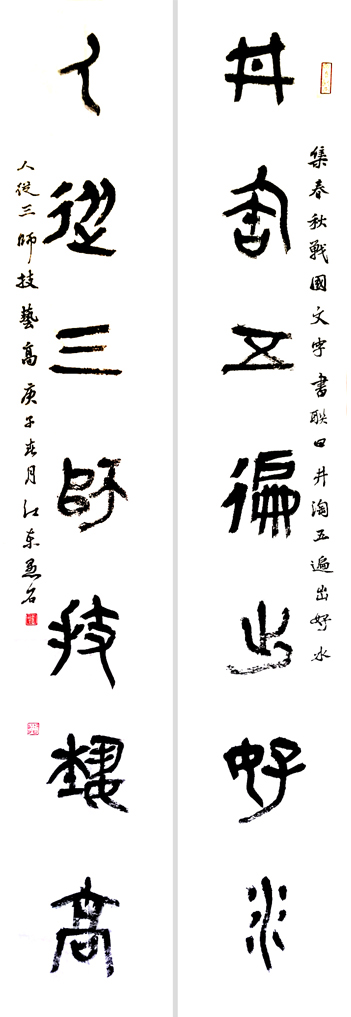 井淘五遍出好水
集春秋戰國文字書聯曰井淘五遍出好水
人從三師技藝高
人從三師技藝高庚子春月江東愚石